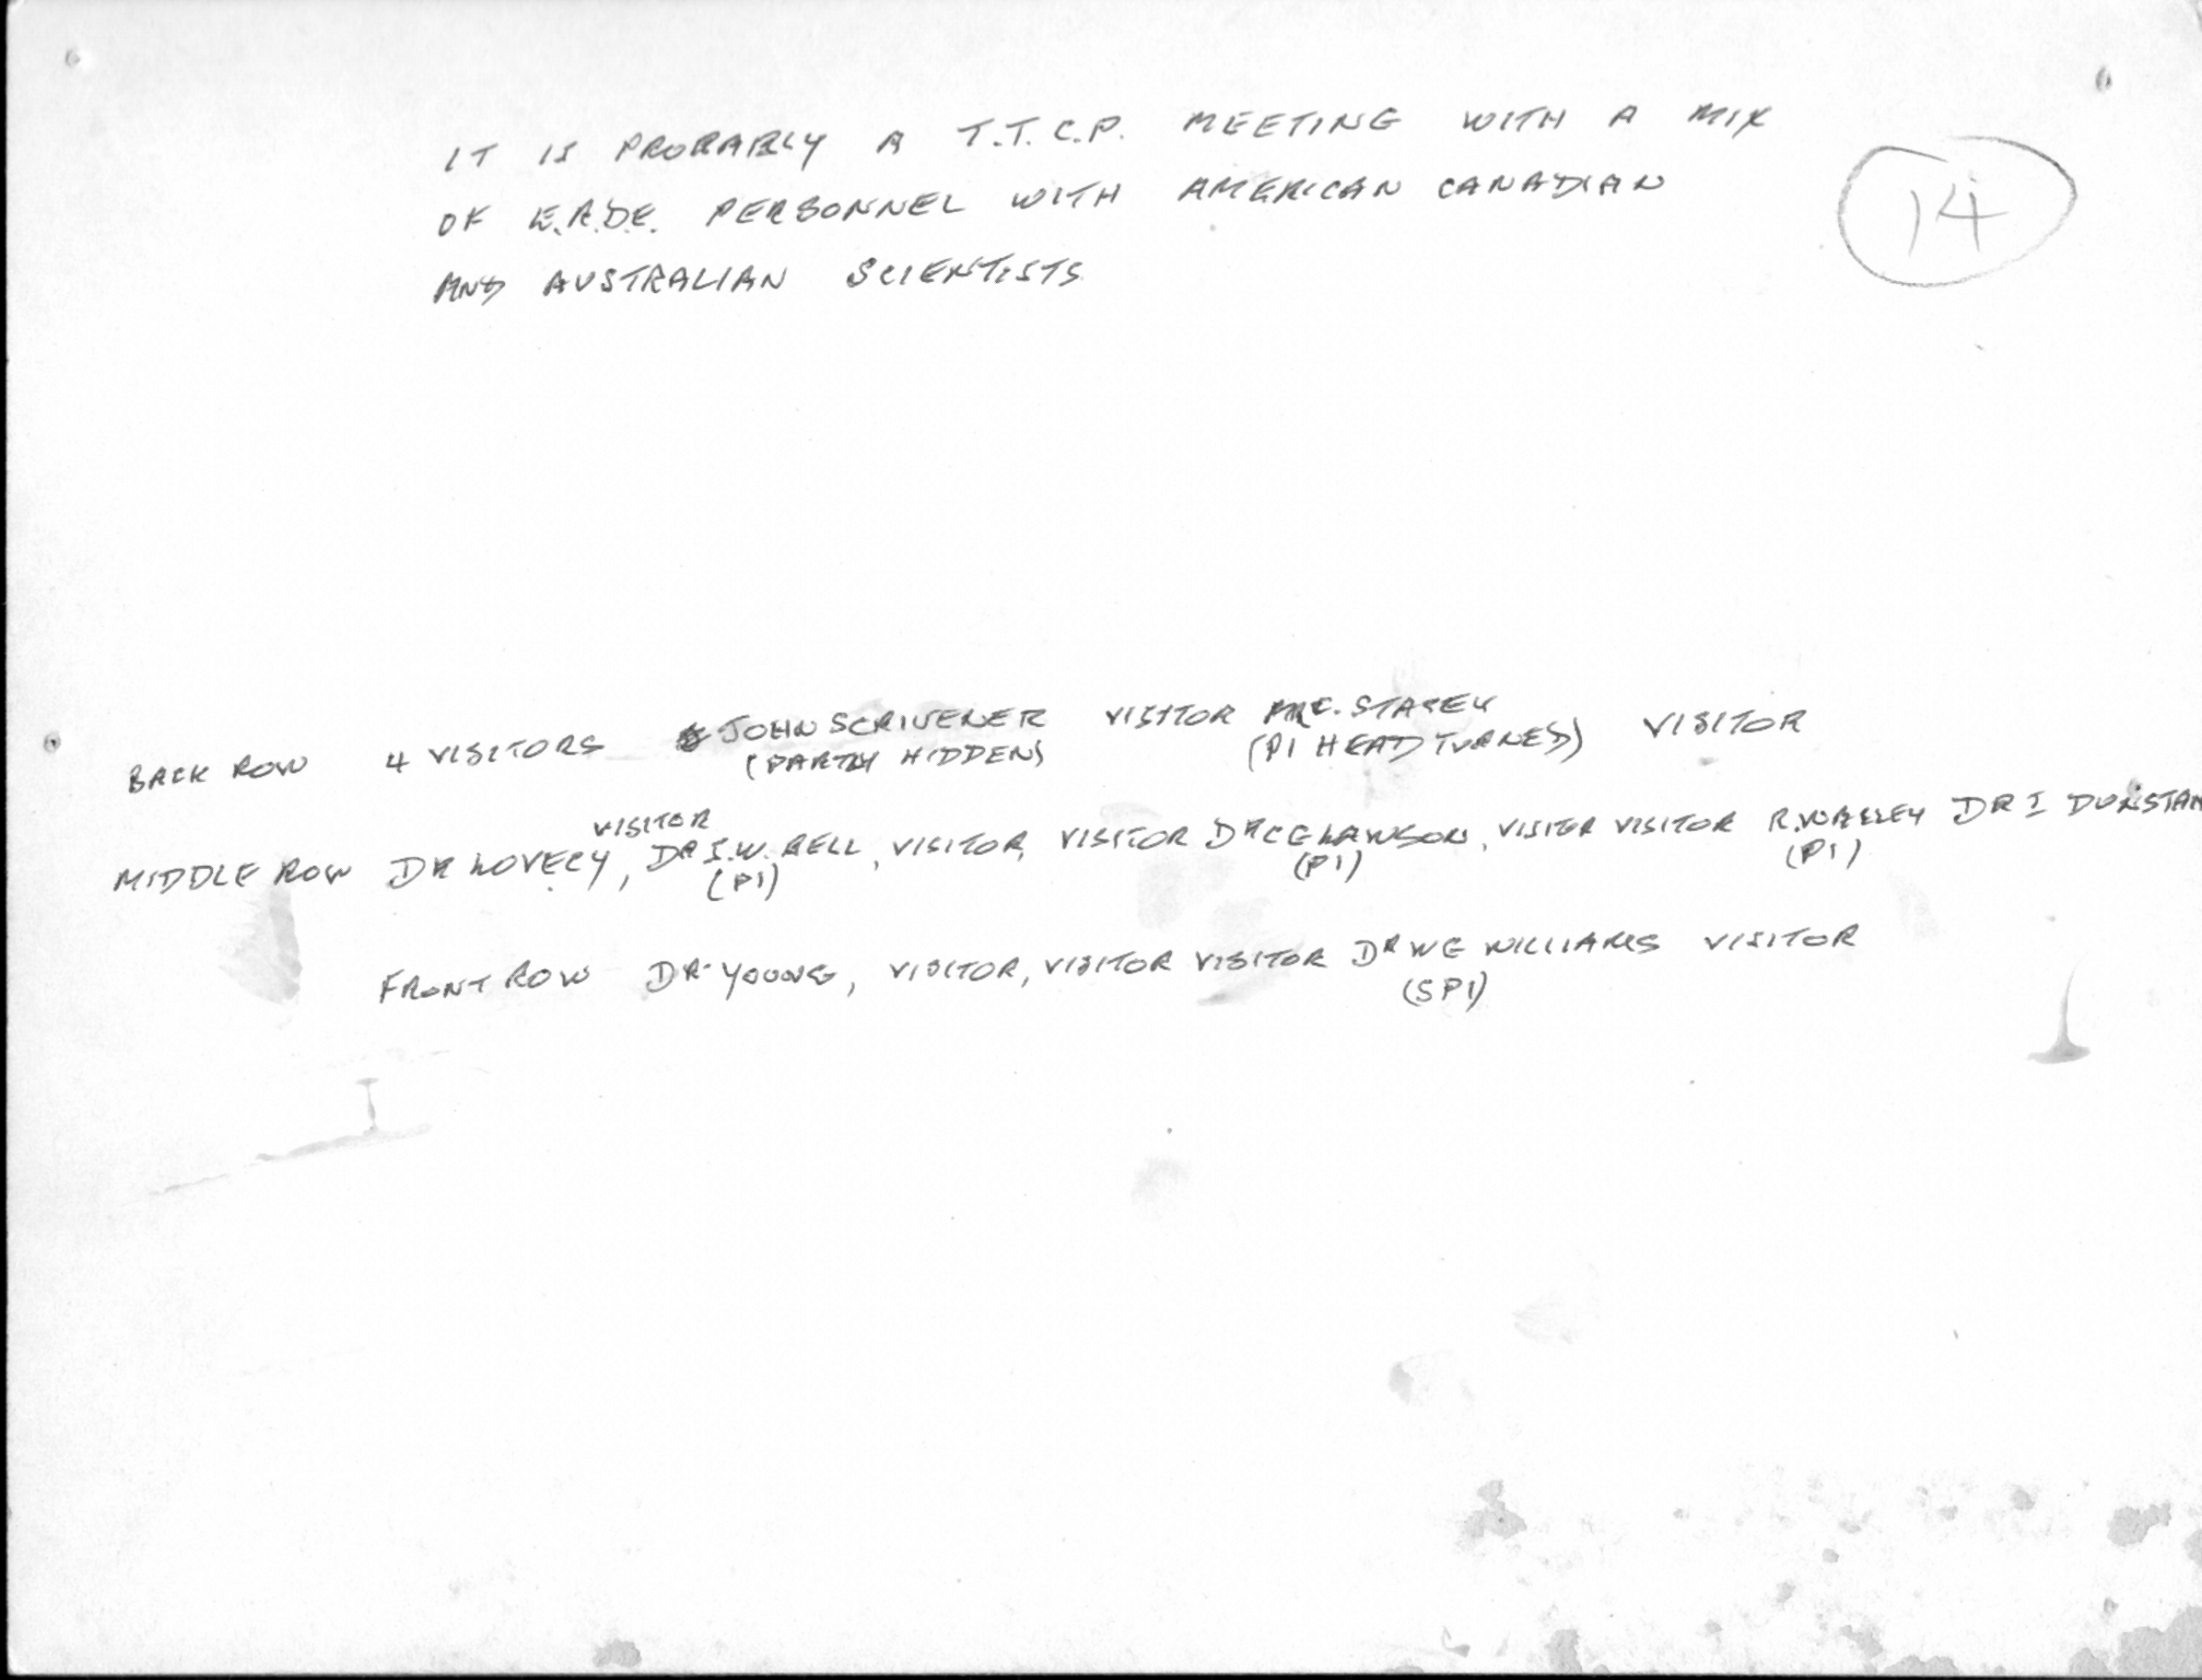 IT IS PROBABLY A T.T.C.P. MEETING WITH A MIX
OF E.R.D.E. PERSONNEL WITH AMERICAN CANADIAN
AND AUSTRALIAN SCIENTISTS
14
BACK ROW 4 VISITORS JOHN SCRIVENER VISITOR STACEY VISITOR
(PARTLY HIDDEN) (P1 HEAD TURNED)
VISITOR
MIDDLE ROW DR LOVECY, DR I.W. BELL, VISITOR, VISITOR DR C G LAWSON, VISITOR VISITOR R. DR I DUNSTAN
(P1) (P1) (P1)
FRONT ROW DR YOUNG, VISITOR, VISITOR VISITOR DR W G WILLIAMS VISITOR
(SP1)